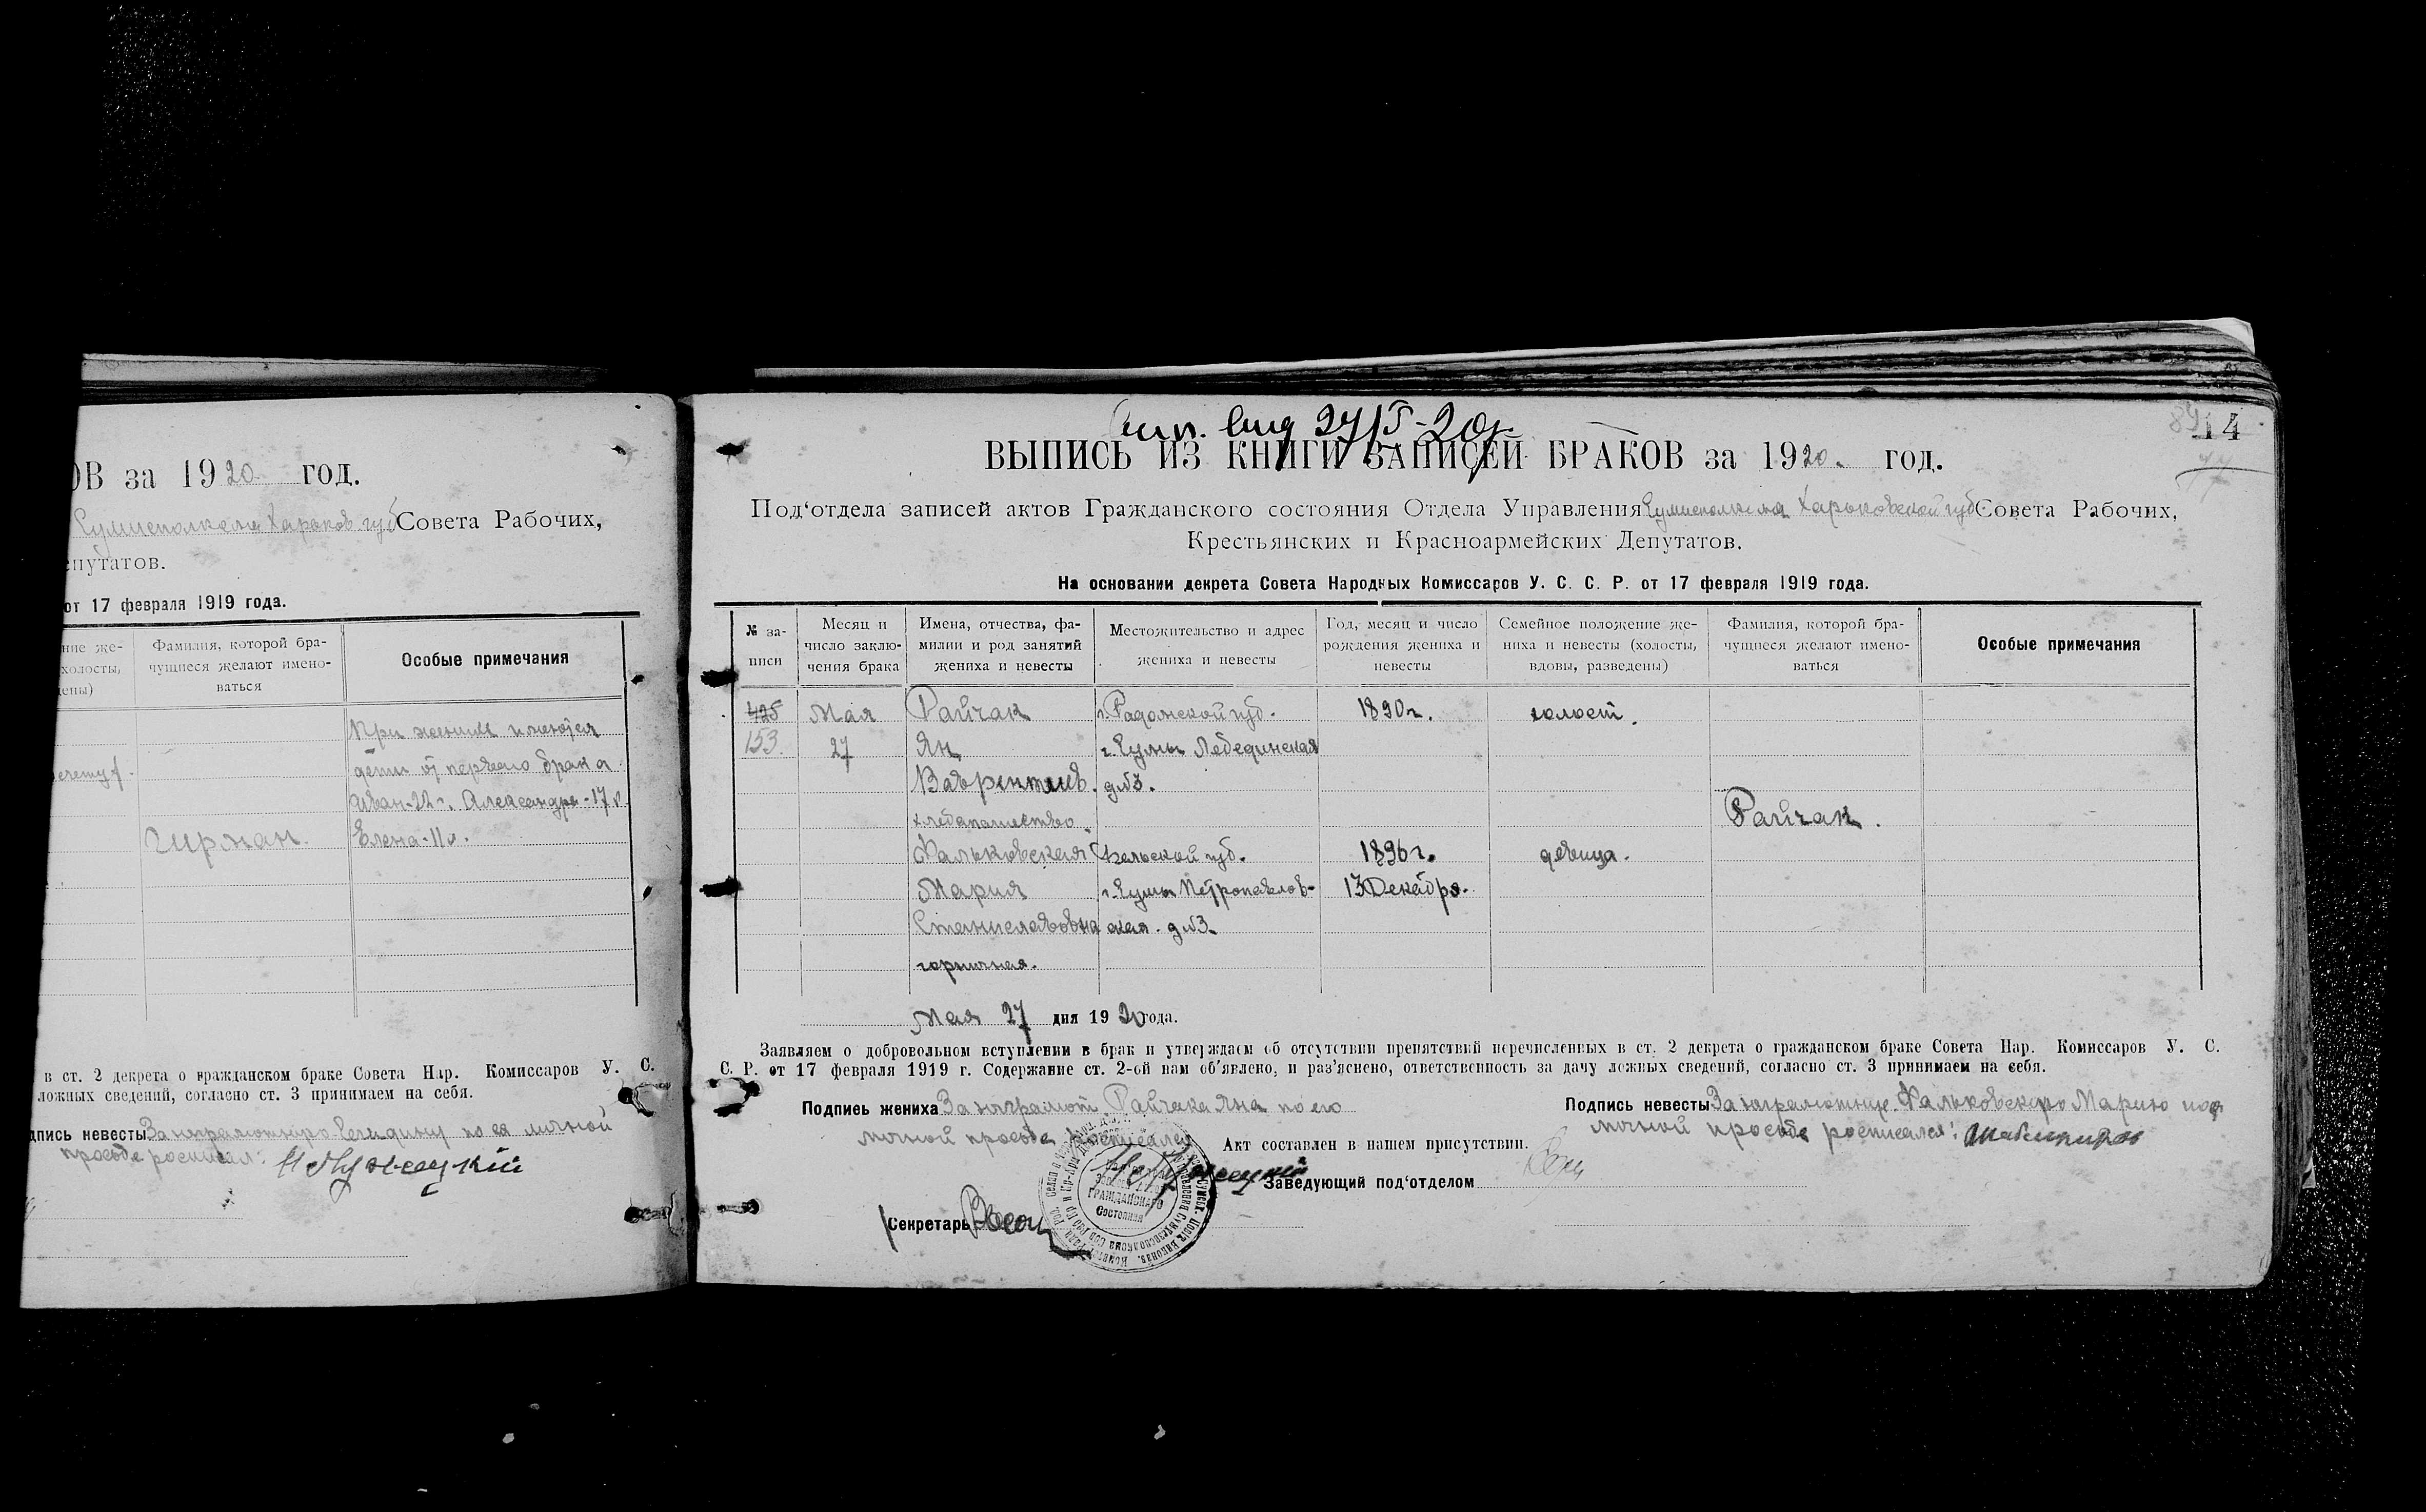 ОВ за 1920 год.
Совета Рабочих,
епутатов.
от 17 февраля 1919 года.
ние же-
холосты,
ены)
Фамилия, которой бра-
чущиеся желают имено-
ваться
Особые примечания
При женихе имеются
дети от первого брака
Иван-22 г. Александра-17 л.
Гирман. Елена-11 л.
в ст. 2 декрета о гражданском браке Совета Нар. Комиссаров У. С.
ложных сведений, согласно ст. 3 принимаем на себя.
дпись невесты За неграмотную по ея личной
просьбе росписал:
27/5-20 г.
14
ВЫПИСЬ ИЗ КНИГИ ЗАПИСЕЙ БРАКОВ за 1920. год.
Под‘отдела записей актов Гражданского состояния Отдела Управления Сумисполкома Харьковской губ Совета Рабочих,
Крестьянских и Красноармейских Депутатов.
На основании декрета Совета Народных Комиссаров У. С. С. Р. от 17 февраля 1919 года.
№ за-
писи
Месяц и
число заклю-
чения брака
Имена, отчества, фа-
милии и род занятий
жениха и невесты
Местожительство и адрес
жениха и невесты
Год, месяц и число
рождения жениха и
невесты
Семейное положение же-
ниха и невесты (холосты,
вдовы, разведены)
Фамилия, которой бра-
чущиеся желают имено-
ваться
Особые примечания
425 Мая Райчак Радомской губ. 1890 г. холост.
153. 27 Ян г. Сумы Лебединская
Ваврентиев. д№3.
хлебопашество. Райчак.
Фальковская Келецкой губ. 1896 г. девица.
Мария г. Сумы Петропавлов- 13 Декабря.
Станиславовна ская. д№3.
горничная.
Мая 27 дня 1920 года.
Заявляем о добровольном вступлении в брак и утверждаем об отсутствии препятствий перечисленных в ст. 2 декрета о гражданском браке Совета Нар. Комиссаров У. С.
С. Р. от 17 февраля 1919 г. Содержание ст. 2-ой нам об‘явлено, и раз‘яснено, ответственность за дачу ложных сведений, согласно ст. 3 принимаем на себя.
Подпись жениха За неграмот. Райчака Яна по его
личной просьбе росписался
Подпись невесты За неграмотную Фальковскую Марию по ея
личной просьбе росписался:
Акт составлен в нашем присутствии.
Заведующий под‘отделом
Секретарь
ГРАЖДАНСКАГО
Состояния